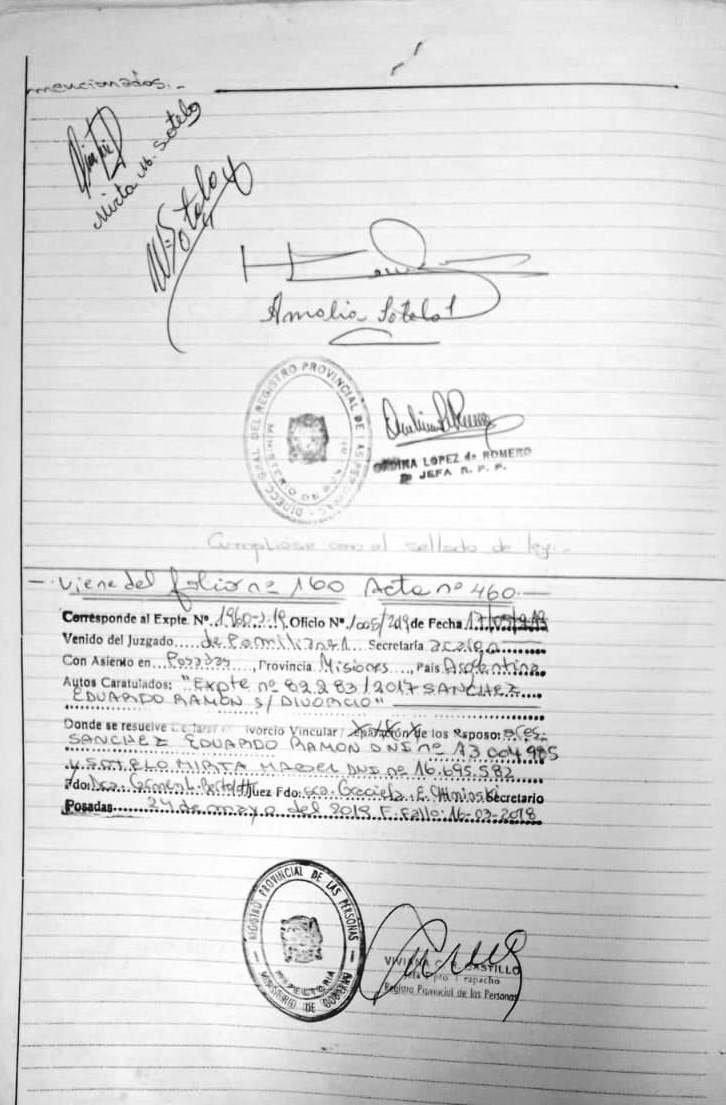 mencionados.-
Mirta M. Sotelo
M. Sotelo
Amalia Sotelo
DIRECC. GRAL. DEL REGISTRO PROVINCIAL DE LAS PERSONAS
MINISTERIO DE GOBIERNO
LOPEZ de ROMERO
JEFA R. P. P.
Cumpliose con el sellado de ley.-
- Viene del folio nº 160 Acta nº 460.-
Corresponde al Expte. Nº. Oficio Nº. de Fecha
Venido del Juzgado de Familia nº 1 Secretaría
Con Asiento en Posadas, Provincia Misiones, País Argentina
Autos Caratulados: "Expte nº 82283/2017 SANCHEZ
EDUARDO RAMON S/ DIVORCIO"
Donde se resuelve Declarar el Divorcio Vincular / Separación de los Esposos:
SANCHEZ EDUARDO RAMON DNI nº 13 004 985
y SOTELO MIRTA MABEL DNI nº 16.695.582
Fdo: Dra. Juez Fdo: Graciela E. Secretario
Posadas 24 de mayo del 2019 F. Fallo: 16-03-2018
REGISTRO PROVINCIAL DE LAS PERSONAS
INSPECTORIA
MINISTERIO DE GOBIERNO
VIVIANA CASTILLO
Registro Provincial de las Personas